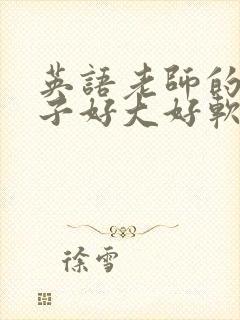 英語老師的
子好大好軟
徐雪